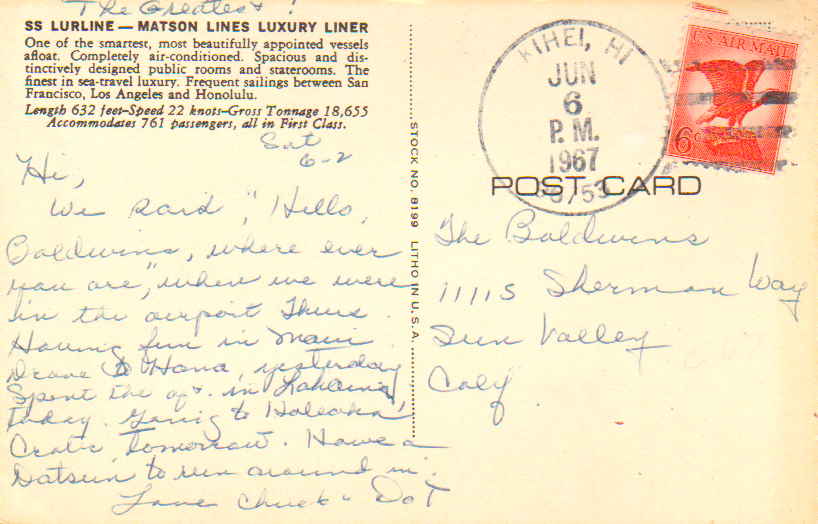 The Greatest!
SS LURLINE — MATSON LINES LUXURY LINER
One of the smartest, most beautifully appointed vessels
afloat. Completely air-conditioned. Spacious and dis-
tinctively designed public rooms and staterooms. The
finest in sea-travel luxury. Frequent sailings between San
Francisco, Los Angeles and Honolulu.
Length 632 feet–Speed 22 knots–Gross Tonnage 18,655
Accommodates 761 passengers, all in First Class.
Sat
6-2
Hi,
We said, "Hello,
Baldwins, where ever
you are", when we were
in the airport Thurs.
Having fun in Maui
Drove to Hana, yesterday
Spent the aft. in Lahaina,
today. Going to Haleaka
Crater tomorrow. Have a
Datsun to run around in.
Love Chuck & Dot
STOCK NO. 8199 LITHO IN U.S.A.
KIHEI, HI
JUN
6
P.M.
1967
96753
U.S. AIR MAIL
6c
POST CARD
The Baldwins
11115 Sherman Way
Sun Valley
Calif